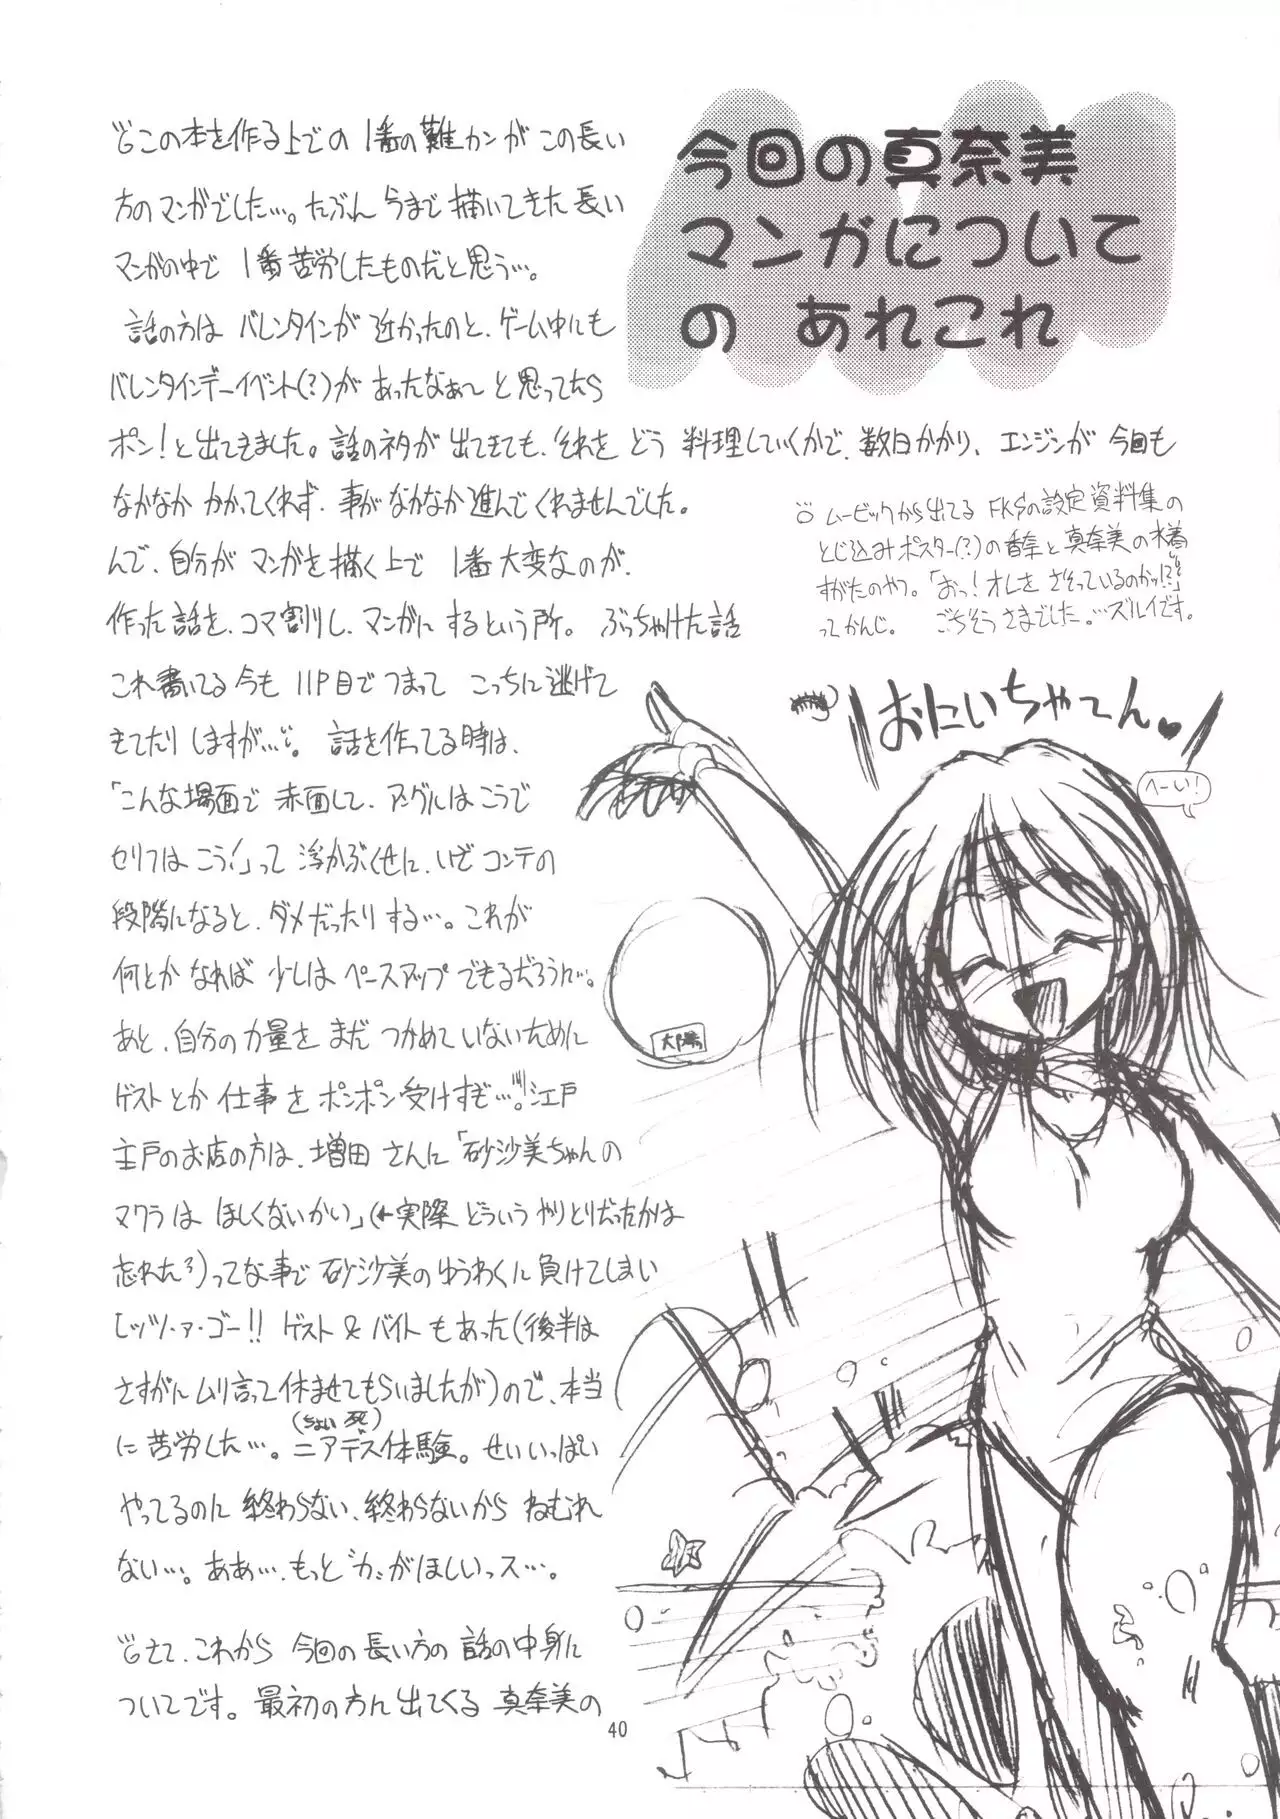 今回の真奈美
マンガについて
の あれこれ
この本を作る上での 1番の難カンが この長い
方のマンガでした…。たぶん 今まで 描いてきた 長い
マンガの中で 1番 苦労したものだと思う…。
話の方は バレンタインが 近かったのと、ゲーム中にも
バレンタインデーイベント(?)が あったなぁ〜 と 思ってたら
ポン!と 出てきました。話のネタが 出てきても、それを どう 料理していくかで、数日かかり、エンジンが 今回も
なかなか かかってくれず、事が なかなか 進んでくれませんでした。
んで、自分が マンガを 描く上で 1番 大変なのが、
作った話を、コマ割りし、マンガに するという所。ぶっちゃけた話
これ書いてる 今も 11P目で つまって こっちに 逃げて
きてたり しますが…。話を作ってる時は、
「こんな場面で 赤面して、アングルはこうで
セリフは こう!」って 浮かぶくせに、いざ コンテの
段階になると、ダメだったり する…。これが
何とか なれば 少しは ペースアップ できるだろうに…。
あと、自分の力量を まだ つかめて いないために
ゲストとか 仕事 を ポンポン 受けすぎ…!!。江戸
主戸のお店の方は、増田 さんに「砂沙美ちゃんの
マクラは ほしくないかい」(←実際 どういう やりとりだったかは
忘れた)ってな事で 砂沙美の ゆうわくに 負けてしまい
レッツ・ァ・ゴー!! ゲスト & バイト もあった(後半は
さすがに ムリ言って 休ませてもらいましたが)ので、本当
に 苦労した…。ニアデス体験。せいいっぱい
(ちょい 死)
やってるのに 終わらない、終わらないから ねむれ
ない…。ああ…、もっと“力”がほしいっス…。
さて、これから 今回の 長い方の 話の中身に
ついてです。最初の方に 出てくる 真奈美の
ムービックから出てる FKSの設定資料集の
とじ込みポスター(?)の香奈と真奈美の水着
すがたのやつ。「おっ! オレを さそっているのかッ!?」
ってかんじ。 ごちそうさまでした。…ズルイです。
おにいちゃてん♥
へーい!
太陽
40